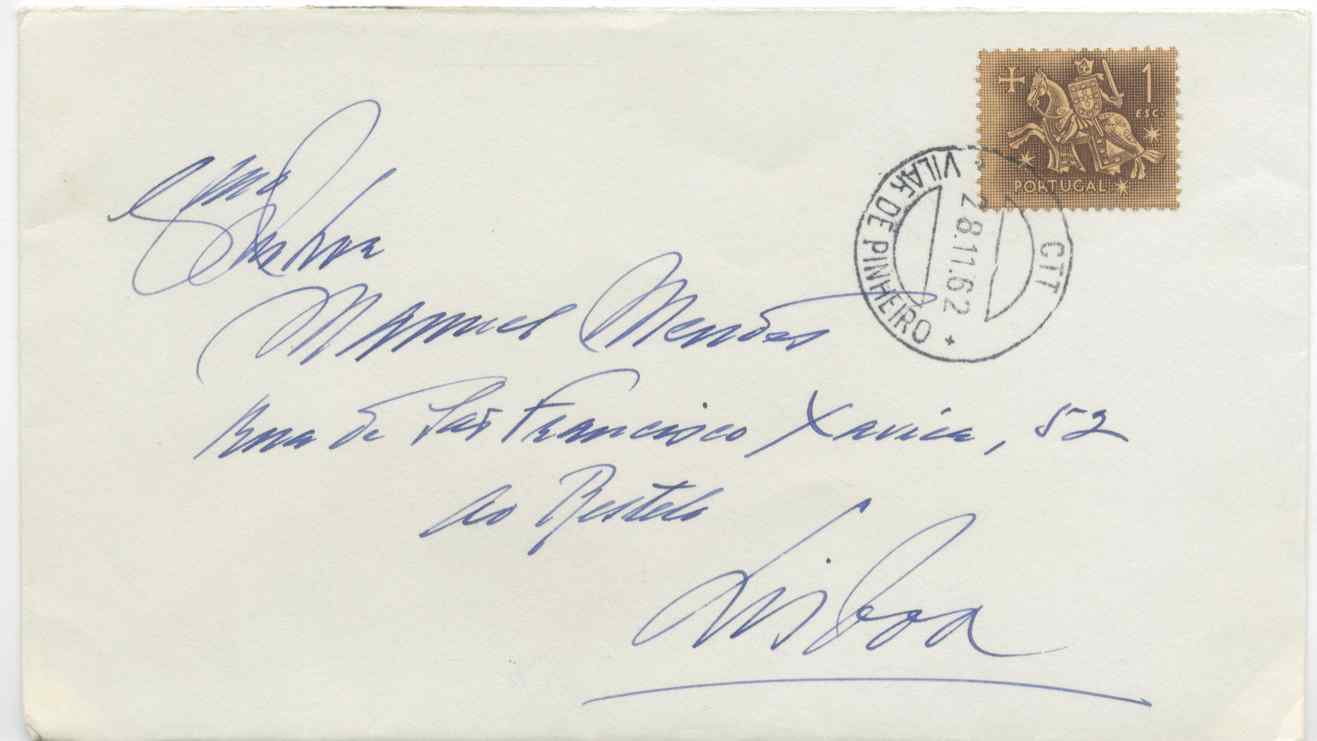 1
ESC.
PORTUGAL
CTT
VILAR DE PINHEIRO
28.11.62
Manuel Mendes
Rua de São Francisco Xavier, 52
ao Restelo
Lisboa